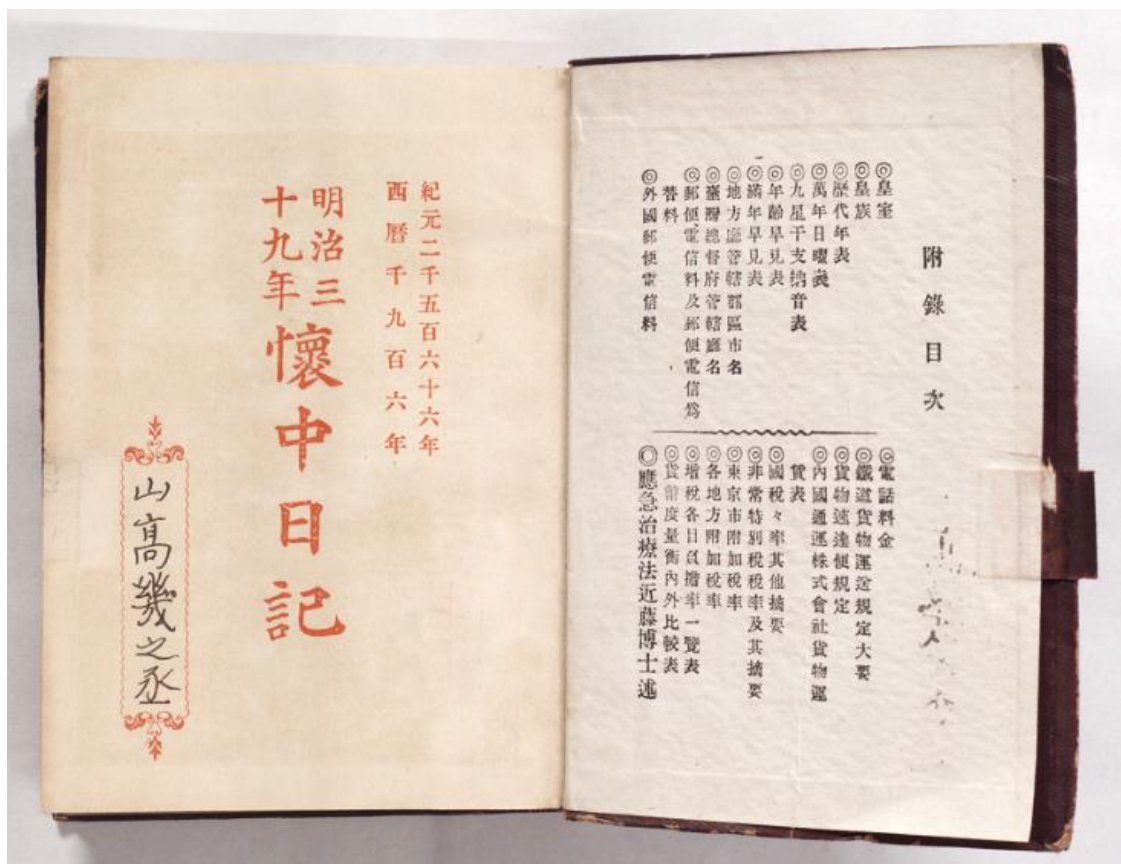 附錄目次
◎皇室
◎皇族
◎歴代年表
◎萬年日曜表
◎九星干支納音表
◎年齡早見表
◎滿年早見表
◎地方廳管轄郡區市名
◎臺灣總督府管轄廳名
◎郵便電信料及郵便電信爲
替料
◎外國郵便電信料
◎電話料金
◎鐵道貨物運送規定大要
◎貨物速達便規定
◎內國通運株式會社貨物運
賃表
◎國稅々率其他摘要
◎非常特別稅稅率及其摘要
◎東京市附加稅率
◎各地方附加稅率
◎增稅各目負擔率一覽表
◎貨幣度量衡內外比較表
◎應急治療法近藤博士述
紀元二千五百六十六年
西曆千九百六年
明治三
十九年
懷中日記
山高幾之丞